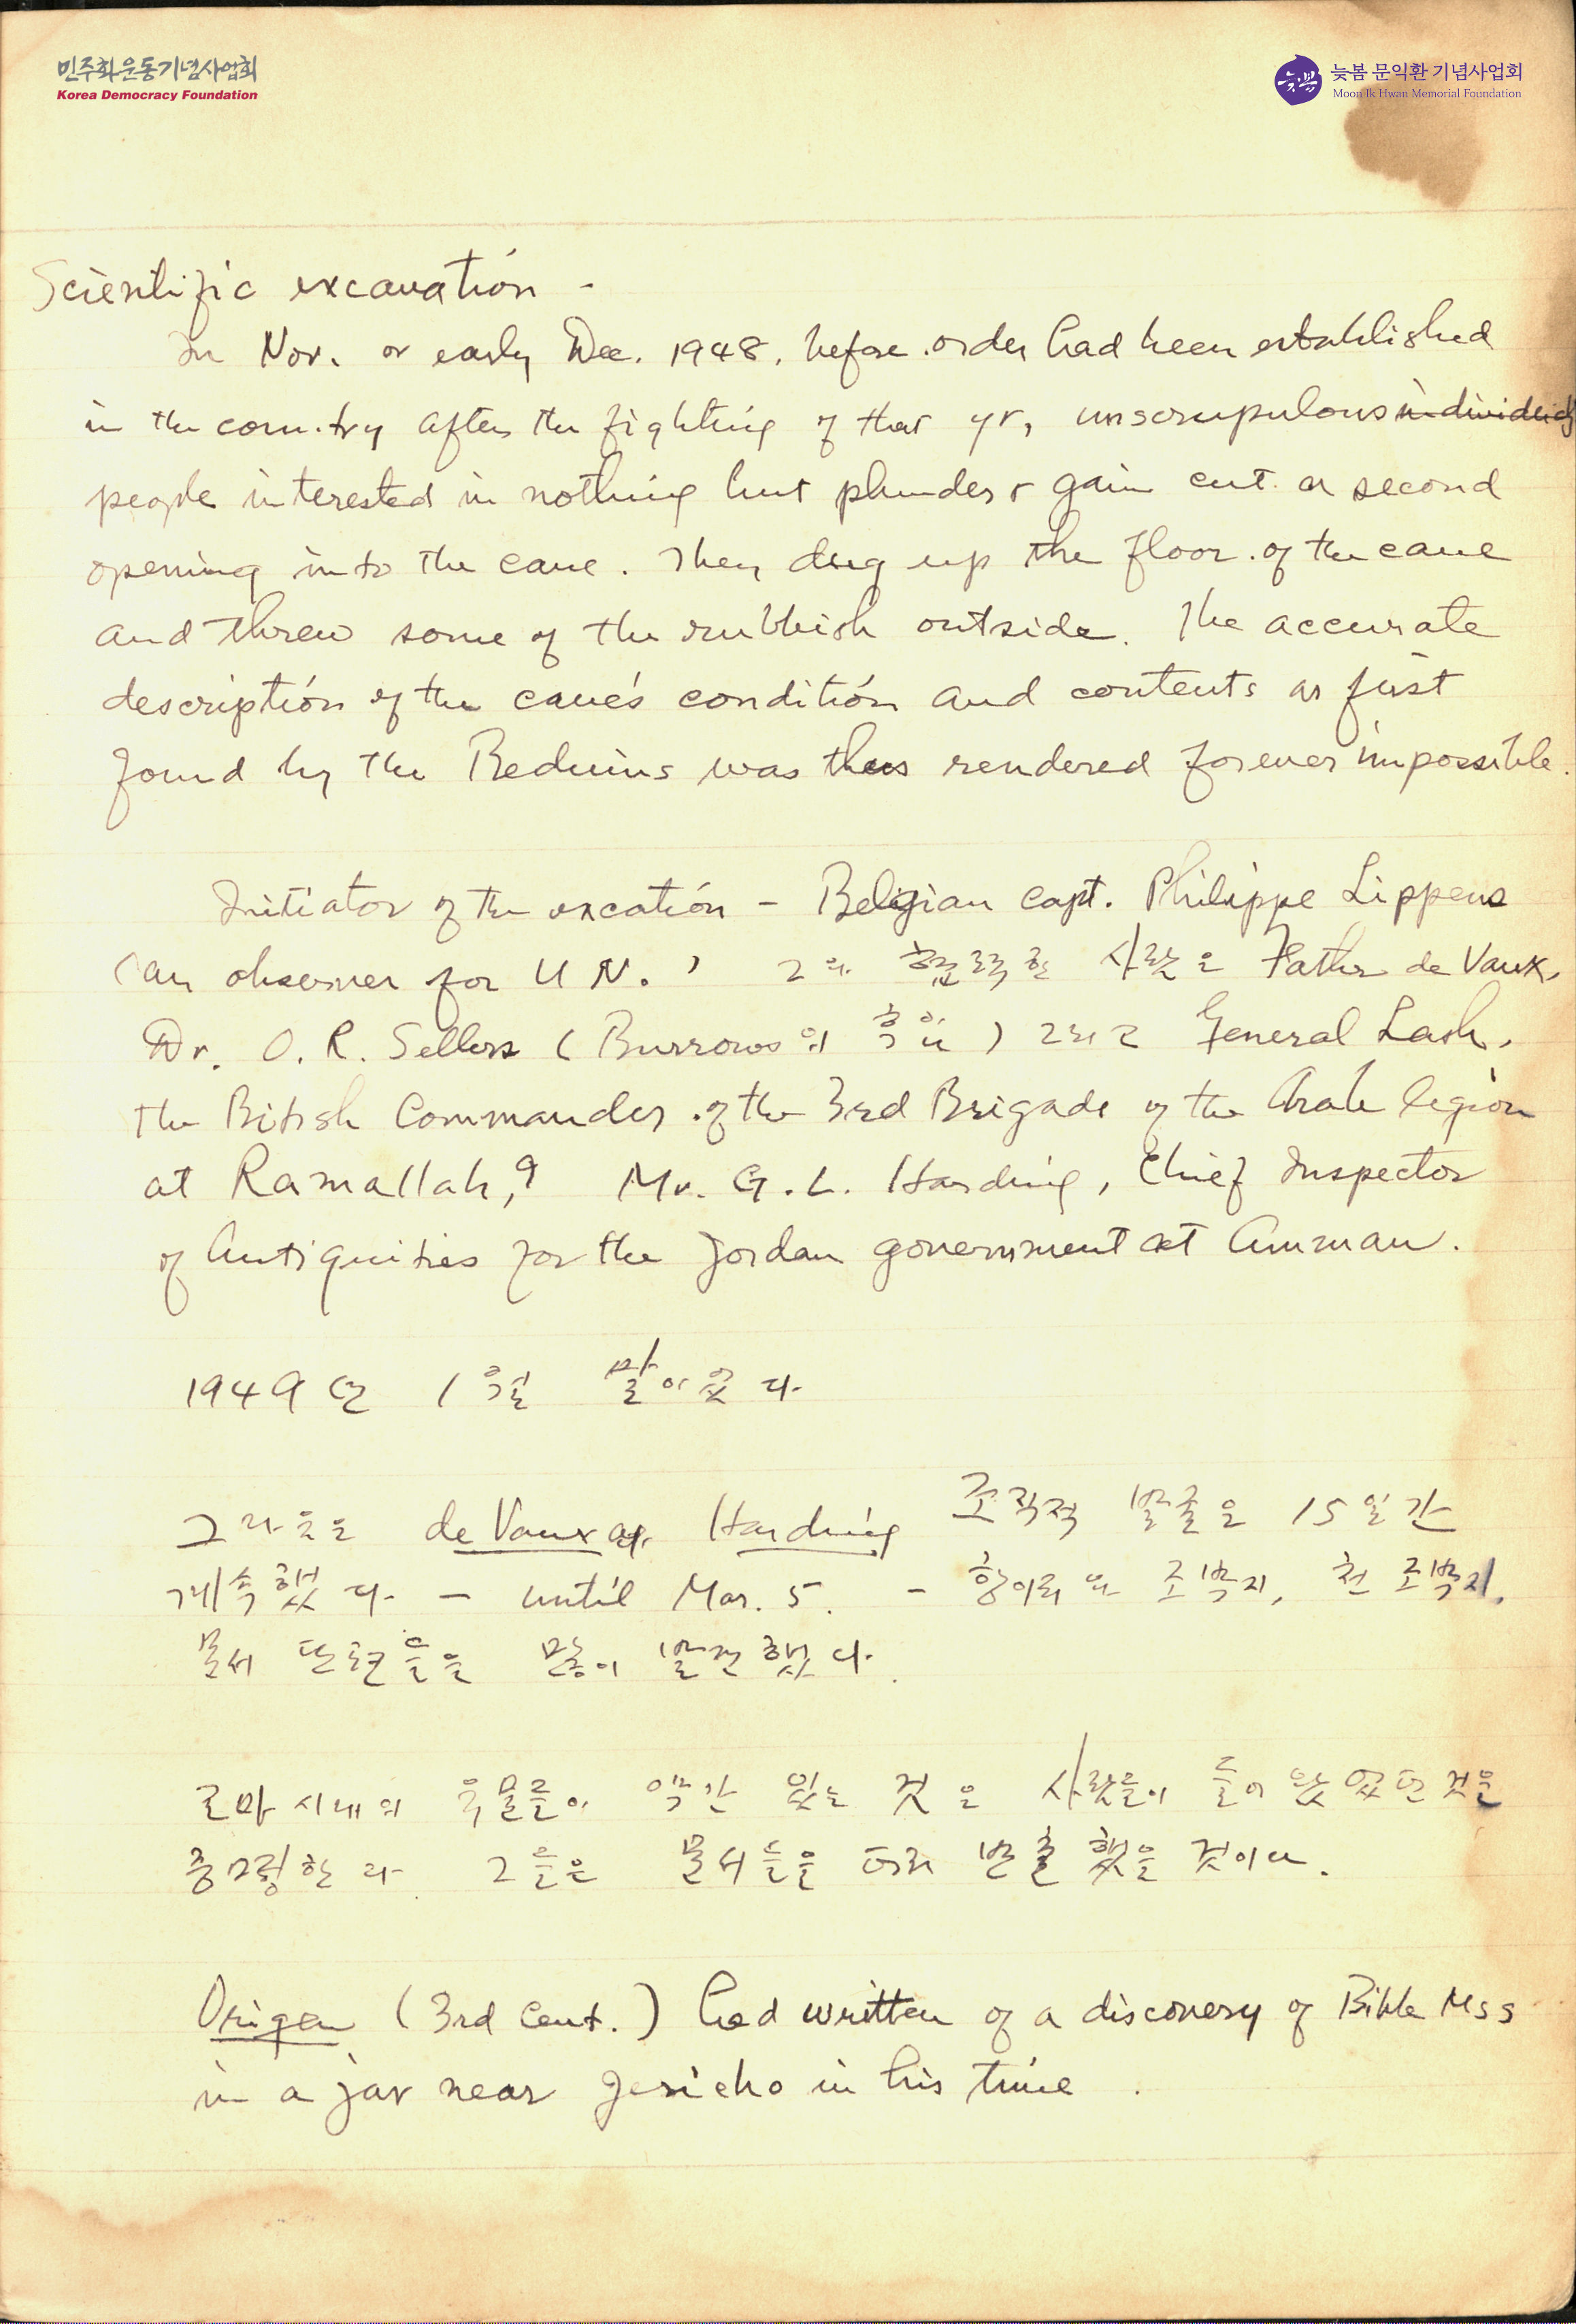 민주화운동기념사업회
Korea Democracy Foundation
늦봄 문익환 기념사업회
Moon Ik Hwan Memorial Foundation
Scientific excavation -
In Nov. or early Dec. 1948, before order had been established
in the country after the fighting of that yr, unscrupulous individuals
people interested in nothing but plunder & gain cut a second
opening into the cave. They dug up the floor of the cave
and threw some of the rubbish outside. The accurate
description of the cave's condition and contents as first
found by the Beduins was thus rendered forever impossible.
Initiator of the excation - Belgian capt. Philippe Lippens
(an observer for U N.) 그와 협력한 사람은 Father de Vaux,
Dr. O. R. Sellers (Burrows의 후임) 그리고 General Lash,
the British Commander of the 3rd Brigade of the Arab legion
at Ramallah, Mr. G. L. Harding, Chief Inspector
of Antiquities for the Jordan government at Amman.
1949년 1월 말이었다
그 다음은 de Vaux Harding 조직적 발출은 15일간
계속했다 - until Mar. 5. - 항아리의 조박지, 천 조박지,
문서 단편들을 많이 발견했다.
로마 시대의 유물들이 약간 있는 것은 사람들이 들어왔었던 것을
증명한다. 그들은 문서들을 더러 반출했을 것이다.
Origen (3rd Cent.) had written of a discovery of Bible Mss
in a jar near Jericho in his time.